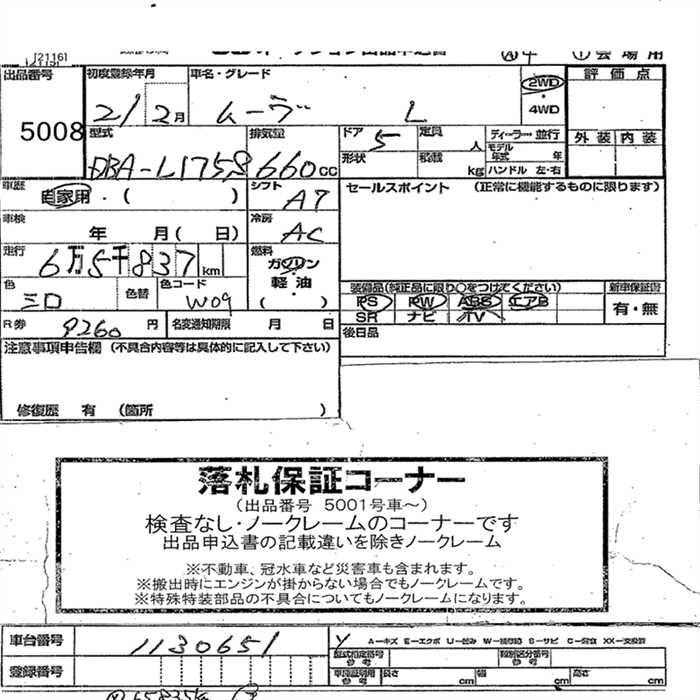 [21161]
会場用
出品番号 初度登録年月 車名・グレード 2WD 評価点
21 2月 ムーヴ L 4WD
5008 型式 排気量 ドア 定員 ディーラー・並行 外装 内装
DBA-L175S 660cc 5 人 モデル年式 年
形状 積載 kg ハンドル 左・右
車歴 自家用・( ) シフト AT セールスポイント (正常に機能するものに限ります)
車検 年 月( 日) 冷房 AC
走行 6万5千837km 燃料 ガソリン・軽油・( )
色 シロ 色替 色コード W09
装備品(純正品に限り○をつけてください) 新車保証書
PS PW ABS エアB 有・無
SR ナビ TV
R券 9260円 名変通知期限 月 日 後日品
注意事項申告欄 (不具合内容等は具体的に記入して下さい)
修復歴 有 (箇所 )
落札保証コーナー
(出品番号 5001号車~)
検査なし・ノークレームのコーナーです
出品申込書の記載違いを除きノークレーム
※不動車、冠水車など災害車も含まれます。
※搬出時にエンジンが掛からない場合でもノークレームです。
※特殊特装部品の不具合についてもノークレームになります。
車台番号 1130651 A-キズ E-エクボ U-凹み W-補修跡 S-サビ C-腐食 XX-交換済
型式指定番号 参考 類別区分番号 参考
登録番号 車庫証明用 参考 長さ cm 幅 cm 高さ cm